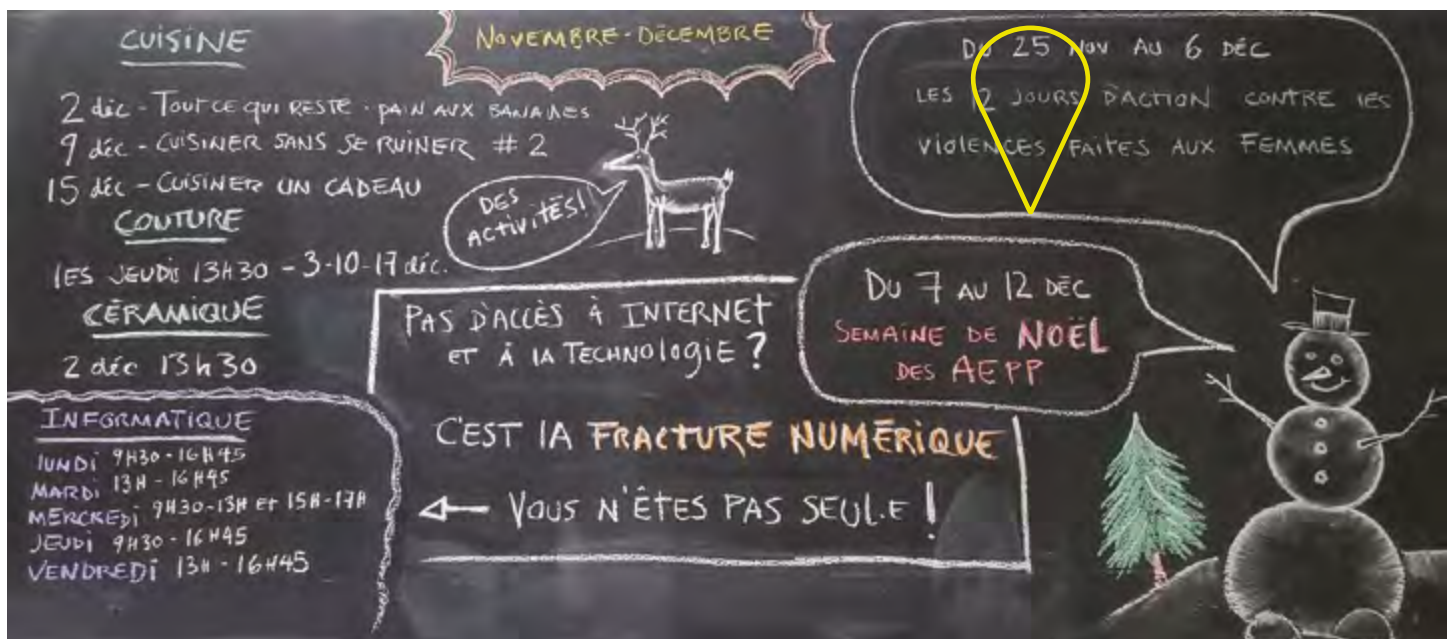 CUISINE
2 déc - TOUT CE QUI RESTE - PAIN AUX BANANES
9 déc - CUISINER SANS SE RUINER # 2
15 déc - CUISINER UN CADEAU
COUTURE
LES JEUDIS 13H30 - 3-10-17 déc.
CÉRAMIQUE
2 déc 13h30
INFORMATIQUE
LUNDI 9H30 - 16H45
MARDI 13H - 16H45
MERCREDI 9H30-13H et 15H-17H
JEUDI 9H30 - 16H45
VENDREDI 13H - 16H45
NOVEMBRE-DÉCEMBRE
DES
ACTIVITÉS!
PAS D'ACCÈS À INTERNET
ET À LA TECHNOLOGIE ?
C'EST LA FRACTURE NUMÉRIQUE
VOUS N'ÊTES PAS SEUL.E !
DU 25 NOV AU 6 DÉC
LES 12 JOURS D'ACTION CONTRE LES
VIOLENCES FAITES AUX FEMMES
DU 7 AU 12 DÉC
SEMAINE DE NOËL
DES AEPP